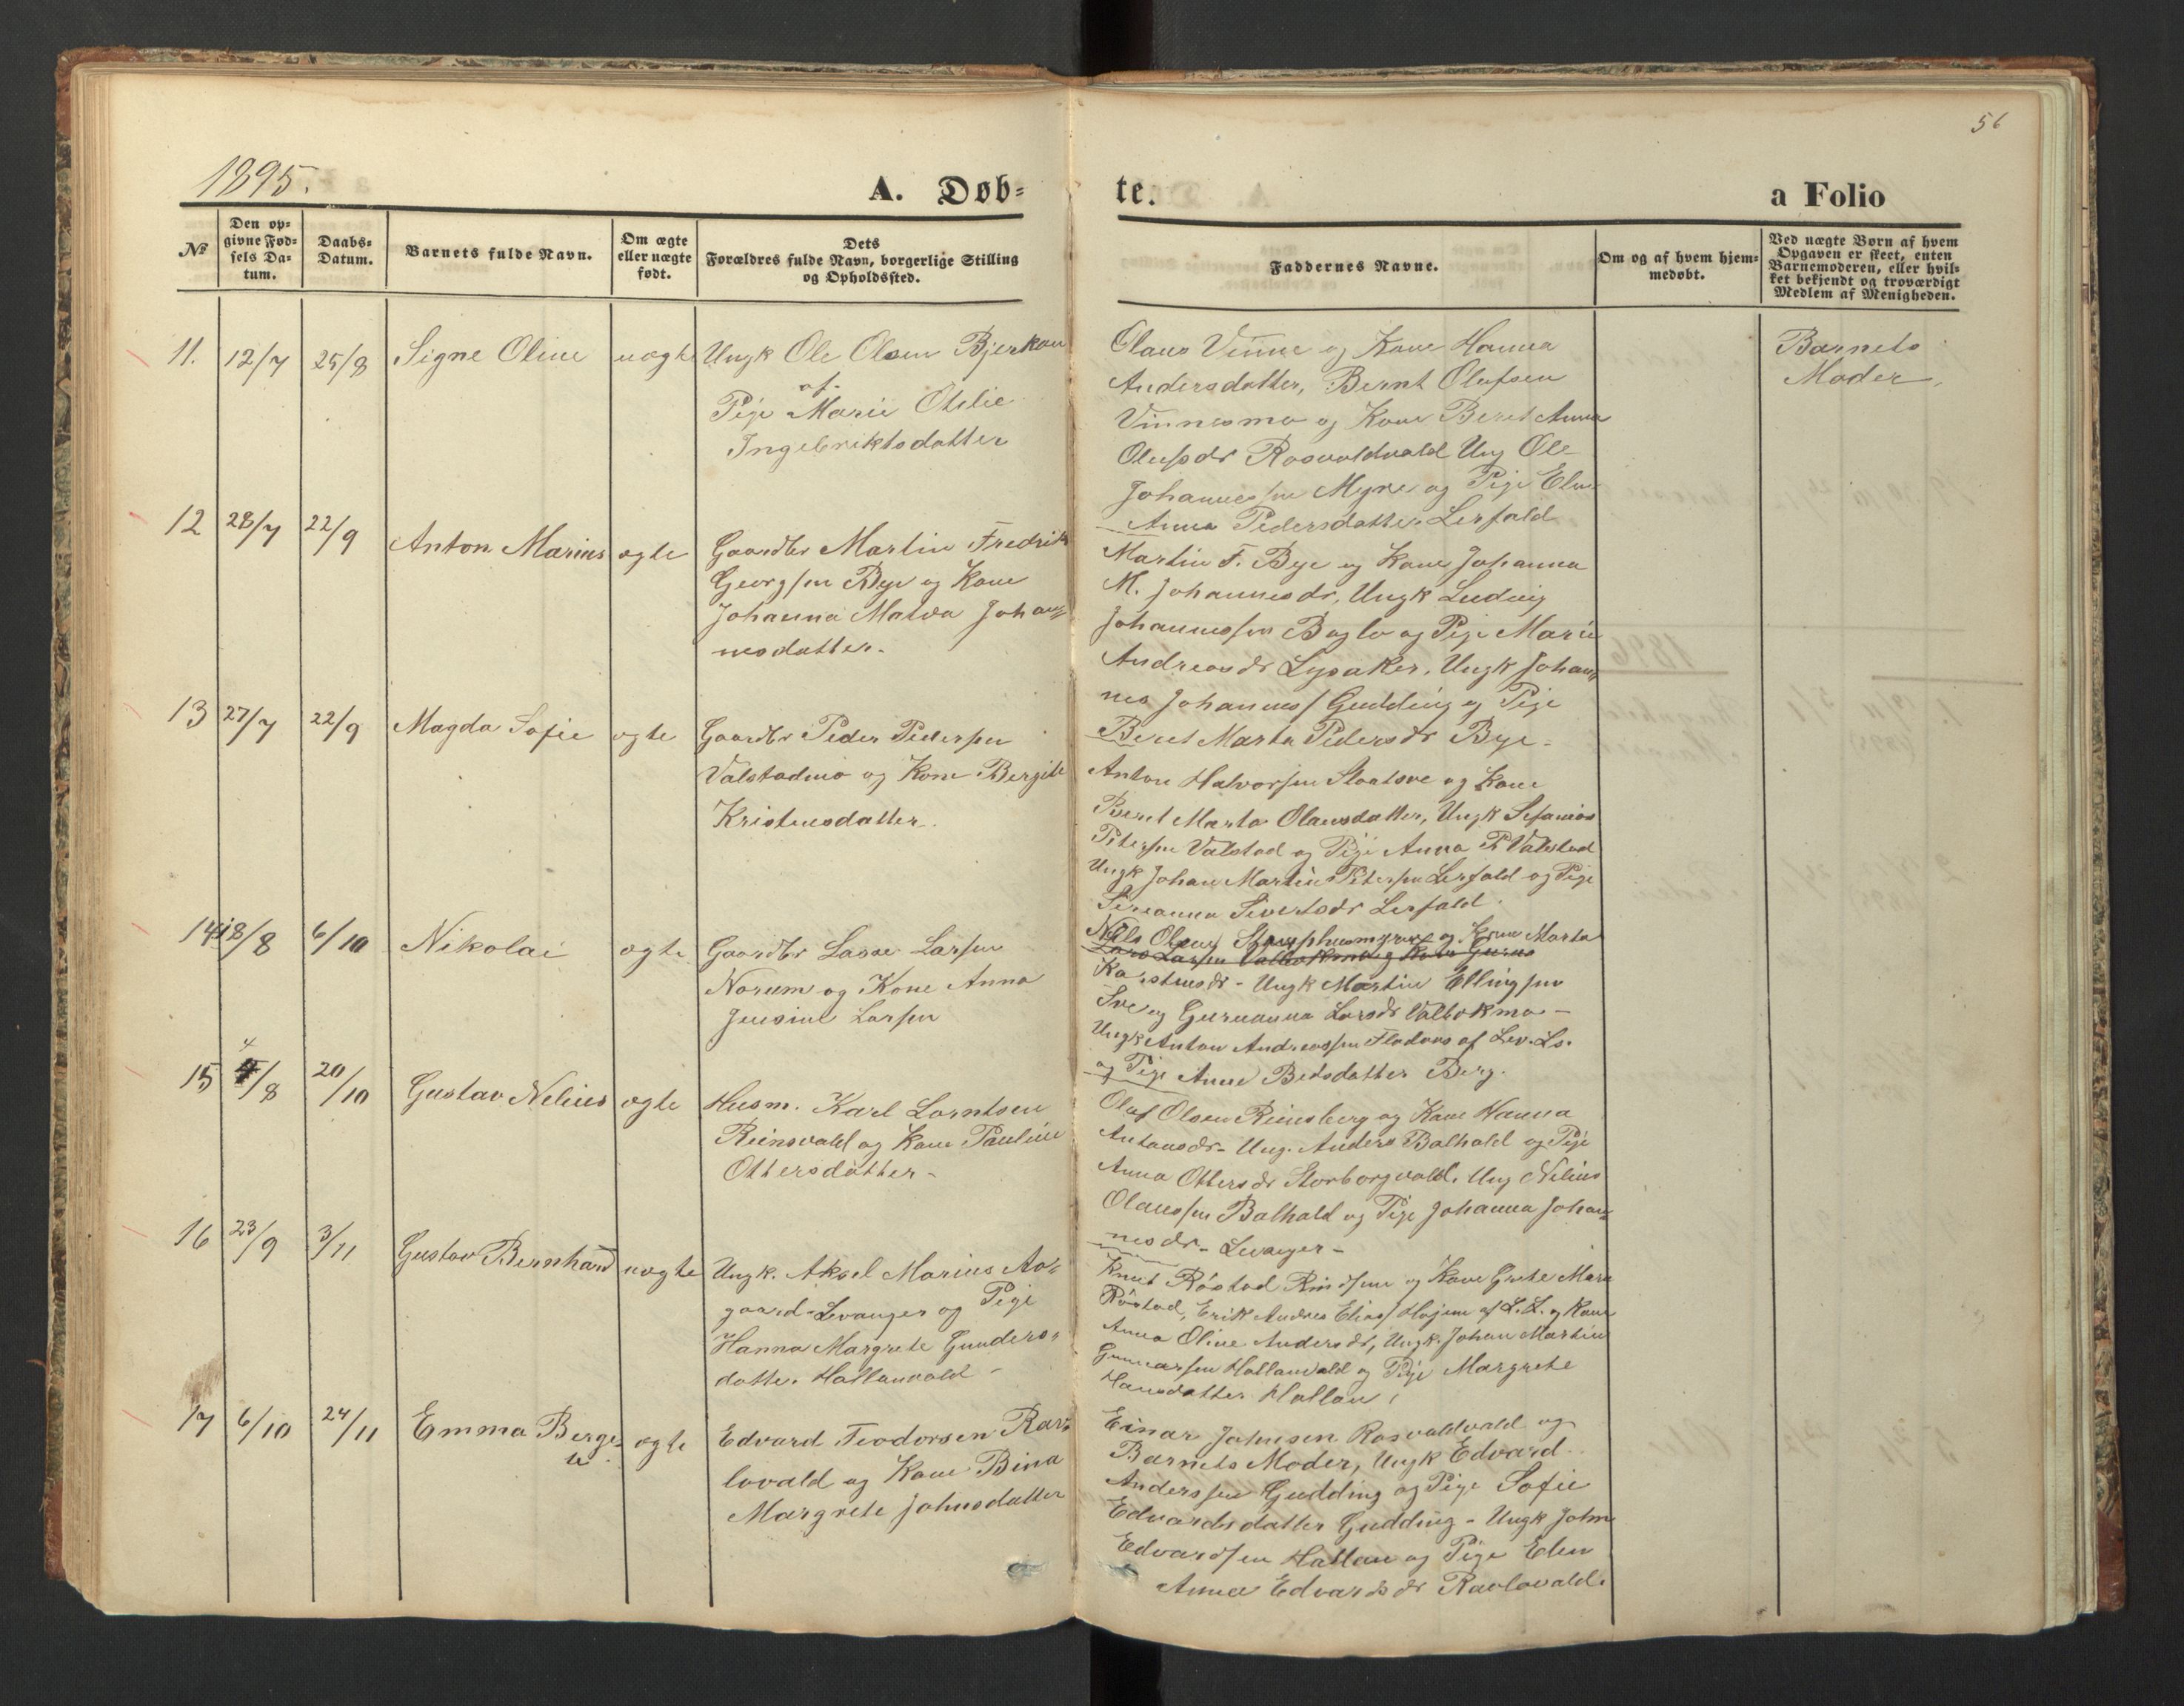 56
1895.
A. Døb=
te.
a Folio
№
Den op=
givne Fød=
sels Da=
tum.
Daabs=
Datum.
Barnets fulde Navn.
Om ægte
eller uægte
født.
Dets
Forældres fulde Navn, borgerlige Stilling
og Opholdssted.
Faddernes Navne.
Om og af hvem hjem=
medøbt.
Ved uægte Børn af hvem
Opgaven er skeet, enten
Barnemoderen, eller hvil=
ket bekjendt og troværdigt
Medlem af Menigheden.
11.
12/7
25/8
Signe Oline
uægte
Ungk Ole Olsen Bjerkan
af
Pige Marie Otilie
Ingebriktsdatter
Olaus Vinne og Kone Hanna
Andersdatter, Bernt Olufsen
Vinnesmo og Kone Beret Anna
Olufsdr Rosvoldvald Ung Ole
Johannessen Myre og Pige Elen
Anna Pedersdatter Lerfald
Barnets
Moder,
12
28/7
22/9
Anton Marius
ægte
Gaardbr Martin Fredrik
Georgsen Bye og Kone
Johanna Matea Johan=
nesdatter.
Martin F. Bye og Kone Johanna
M. Johannesdr, Ungk Ludvig
Johannessen Baglo og Pige Marie
Andreasdr Lysaker, Ungk Johan=
nes Johanness Gudding og Pige
Beret Marta Pedersdr Bye.
13
27/7
22/9
Magda Sofie
ægte
Gaardbr Peder Pedersen
Valstadmo og Kone Bergite
Kristensdatter.
Anton Halvorsen og Kone
Beret Marta Olausdatter, Ungk Sefanias
Petersen Valstad og Pige Anna P. Valstad
Ungk Johan Martin Petersen Lerfald og Pige
Sereanna Sivertsdr Lerfald.
14
18/8
6/10
Nikolai
ægte
Gaardbr Lasse Larsen
Norum og Kone Anna
Jensine Larsen
Nils Olsen og Kone Marta
Lars Larsen Valbekmo og Kone
Karstensdr - Ungk Martin Ellingsen
og Gurunanna Larsdr Valbekmo -
Ungk Anton Andreassen af Lev. Ls.
og Pige Anne Berg.
15
4/8
20/10
Gustav Nelius
ægte
Husm. Karl Lorntsen
Reinsvald og Kone Pauline
Ottersdatter -
Oluf Olsen Reinsberg og Kone Hanna
Antonsdr - Ung. Anders Balhald og Pige
Anna Ottersdr Storborgvald. Ung Nelius
Olaussen Balhald og Pige Johanna Johan=
nesdr - Levanger -
16
23/9
3/11
Gustav Bernhard
uægte
Ungk. Aksel Marius Aa=
gaard Levanger og Pige
Hanna Margrete Gunders=
datte. Hallanvald -
Knut Røstad og Kone Grete Marie
Røstad, Erik Andreas Elias Hojem af L. L. og Kone
Anna Oline Andersdr, Ungk. Johan Martin
Gunnarsen Hallanvald og Pige Margrete
Hansdatter Hallan,
17
6/10
24/11
Emma Berge=
te.
ægte
Edvard Teodorsen Rav=
lovald og Kone Bina
Margrete Johnsdatter
Einar Johnsen Rosvoldvald og
Barnets Moder, Ungk Edvard
Anderssen Gudding og Pige Sofie
Edvardsdatter Gudding - Ungk John
Edvardsen Hallan og Pige Elen
Anna Edvardsdr Ravlovald.